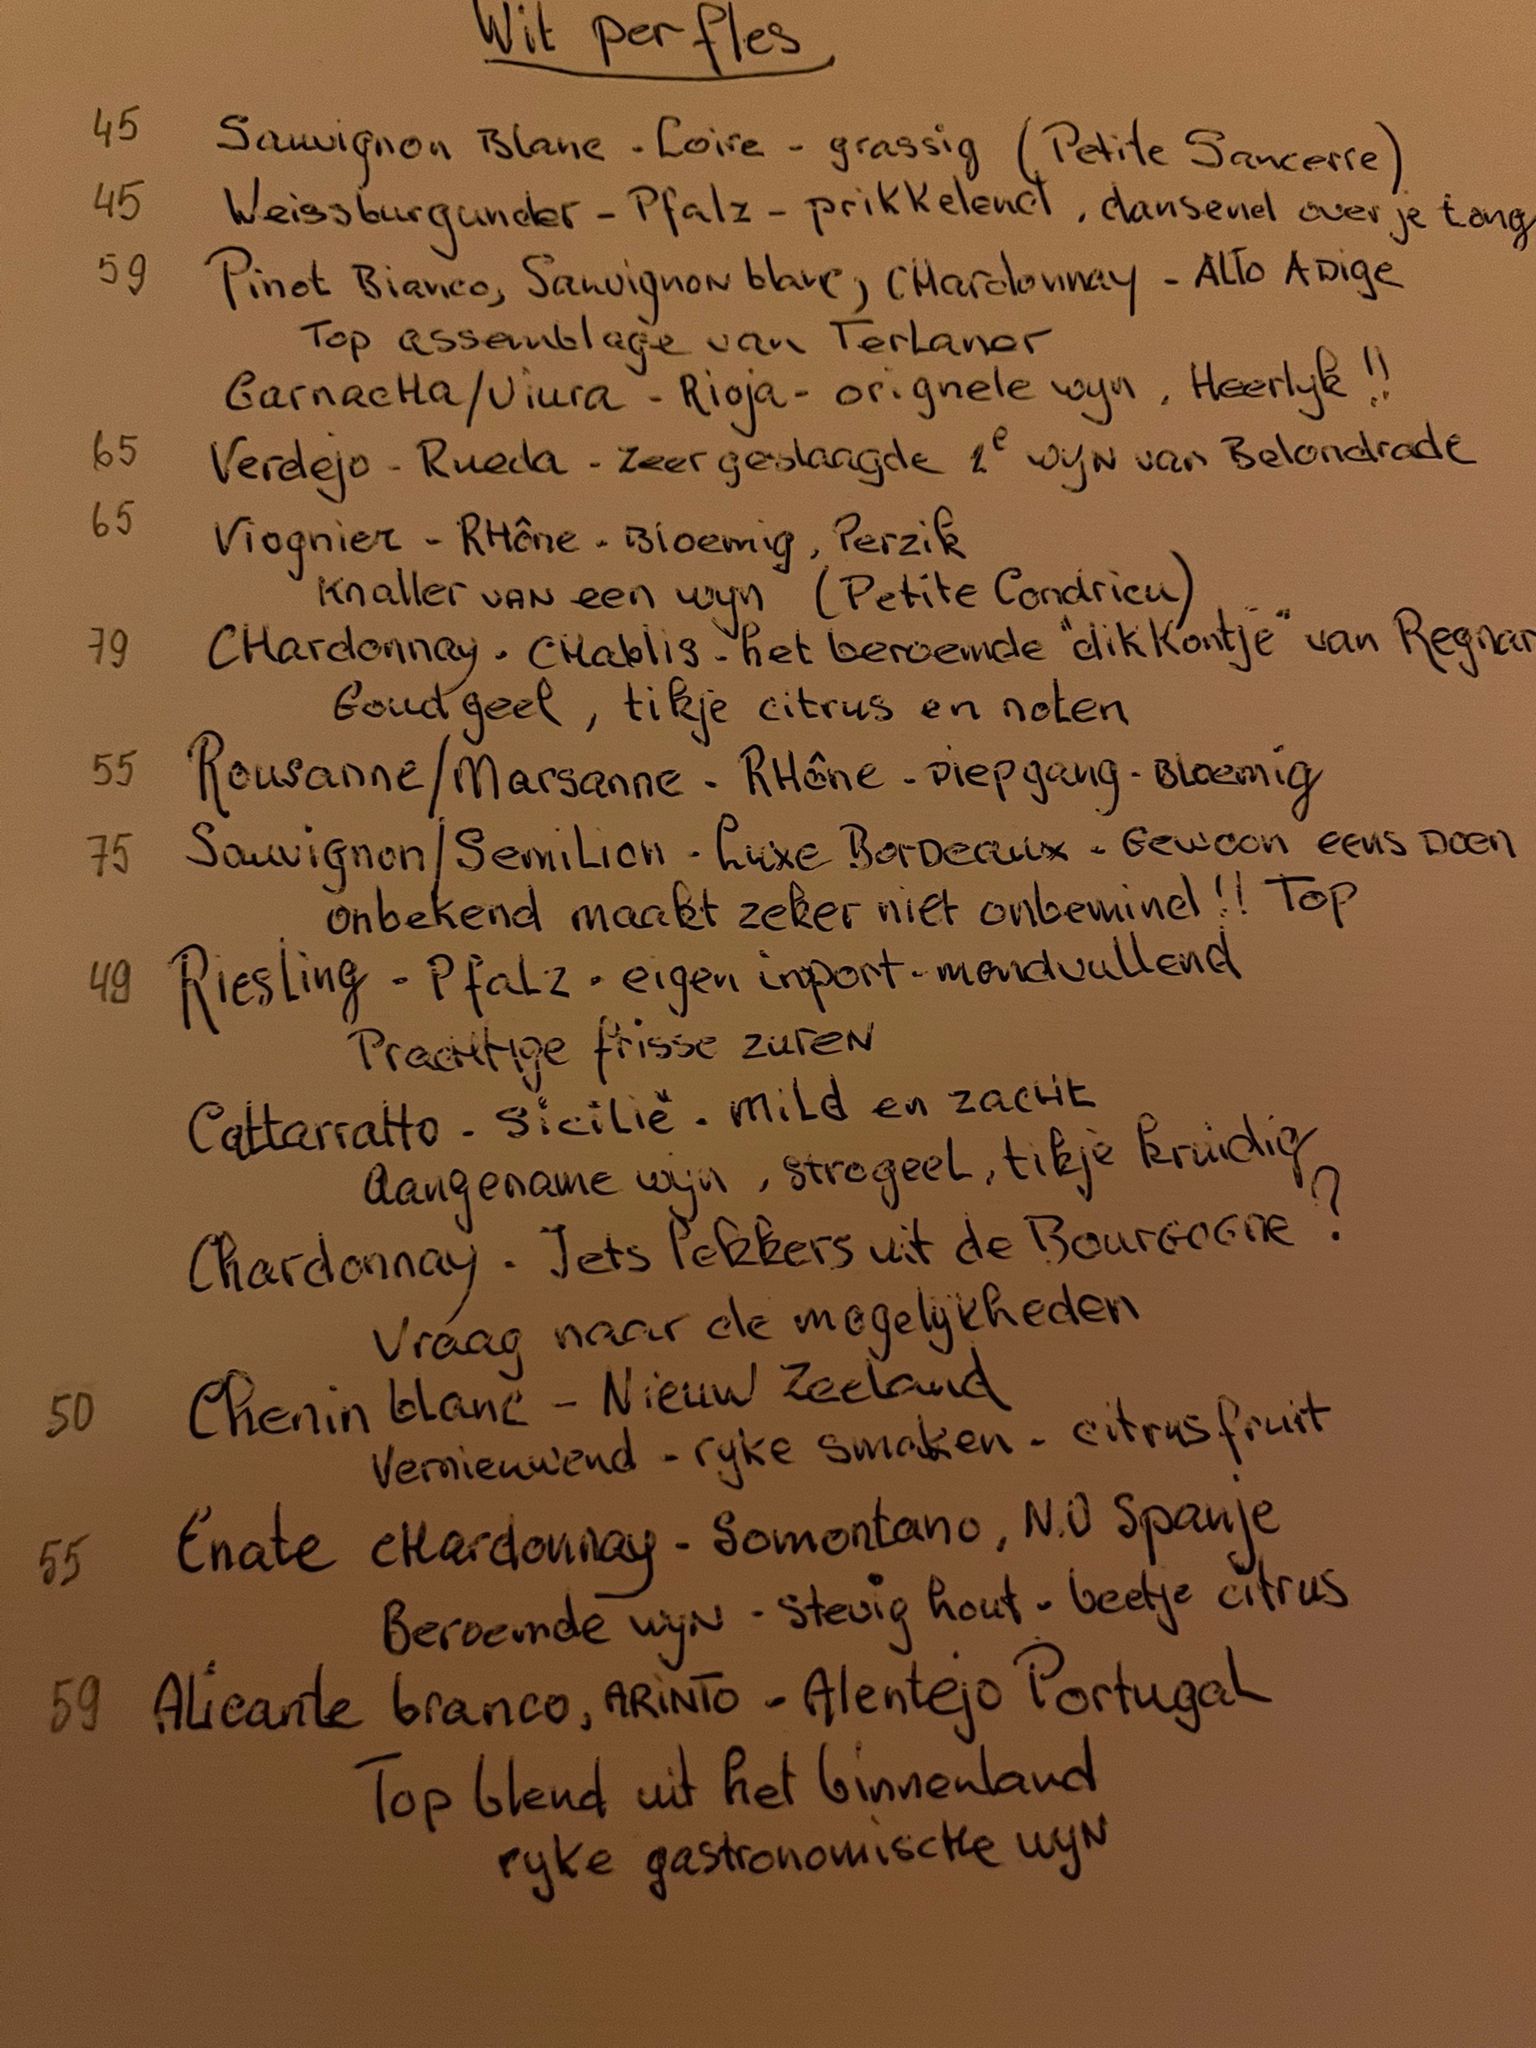 Wit per fles
45 Sauvignon Blanc - Loire - grassig (Petite Sancerre)
45 Weissburgunder - Pfalz - prikkelend, dansend over je tong
59 Pinot Bianco, Sauvignon blanc, CHardonnay - ALTO ADige
Top assemblage van Terlaner
GarnacHa/Viura - Rioja - orignele wyn, Heerlyk!!
65 Verdejo - Rueda - zeer geslaagde 2e wyn van Belondrade
65 Viognier - RHône - Bloemig, Perzik
Knaller van een wyn (Petite Condrieu)
79 CHardonnay - CHablis - het beroemde "dik Kontje" van Regnar
Goud geel, tikje citrus en noten
55 Rousanne/Marsanne - RHône - Diepgang - Bloemig
75 Sauvignon/Semilion - Luxe Bordeaux - Gewoon eens Doen
onbekend maakt zeker niet onbemind!! Top
49 Riesling - Pfalz - eigen inport - mondvullend
PracHtige frisse zuren
Cattarratto - Sicilië - Mild en zacHt
Aangename wyn, strogeel, tikje kruidig
Chardonnay - Iets lekkers uit de Bourgogne?
Vraag naar de mogelijkheden
50 Chenin blanc - Nieuw Zeeland
Vernieuwend - ryke smaken - citrusfruit
55 Enate cHardonnay - Somontano, N.O Spanje
Beroemde wyn - stevig hout - beetje citrus
59 Alicante branco, ARINTO - Alentejo Portugal
Top blend uit het binnenland
ryke gastronomiscHe wyn